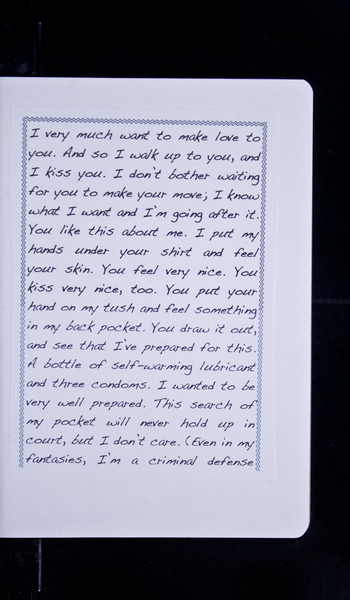 I very much want to make love to
you. And so I walk up to you, and
I kiss you. I don't bother waiting
for you to make your move; I know
what I want and I'm going after it.
You like this about me. I put my
hands under your shirt and feel
your skin. You feel very nice. You
kiss very nice, too. You put your
hand on my tush and feel something
in my back pocket. You draw it out,
and see that I've prepared for this.
A bottle of self-warming lubricant
and three condoms. I wanted to be
very well prepared. This search of
my pocket will never hold up in
court, but I don't care. (Even in my
fantasies, I'm a criminal defense